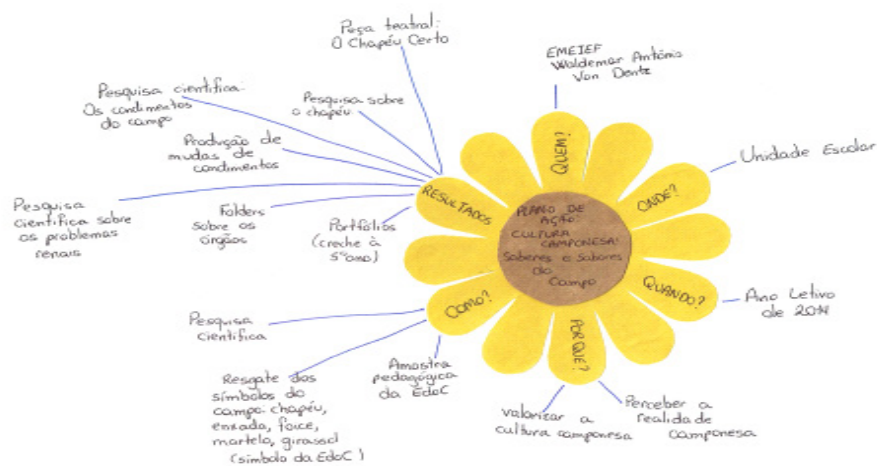 PLANO DE
AÇÃO:
CULTURA
CAMPONESA:
Saberes e Sabores
do
Campo
QUEM?
EMEIEF
Waldemar Antônio
Von Dentz
ONDE?
Unidade Escolar
QUANDO?
Ano Letivo
de 2014
POR QUE?
Perceber a
realidade
camponesa
valorizar a
cultura camponesa
COMO?
Amostra
pedagógica
da EdoC
Resgate dos
símbolos do
campo: chapéu,
enxada, foice,
martelo, girassol
(símbolo da EdoC)
Pesquisa
científica
RESULTADOS
Portfólios
(creche à
5º ano)
Folders
sobre os
órgãos
Pesquisa
científica sobre
os problemas
renais
Produção de
mudas de
condimentos
Pesquisa científica:
Os condimentos
do campo
Pesquisa sobre
o chapéu
Peça teatral:
O Chapéu Certo